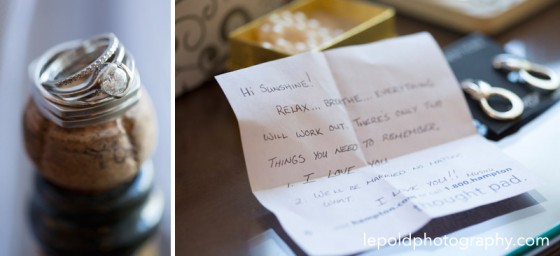 Hi SUNSHINE!
RELAX... BREATHE... EVERYTHING
WILL WORK OUT. THERES ONLY FUB
THINGS YOU NEED TO REMEMBER.
1. I LOVE YOU
2 WE'LL BE MARRIED NO MATTER
WHAT I LOVE YOU!!
1.800.hampton
hampton.com
thought pad.
lepoldphotography.com